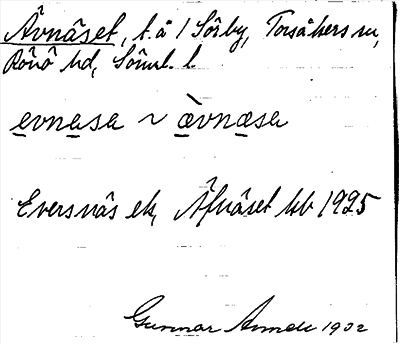 Ävnäset, t. å 1 Sörby, Torsåkers sn,
Rönö hd, Söml. l.
evnasa ~ ævnæsa
Eversnäs ek, Äfnäset kb 1925
Gunnar 1932